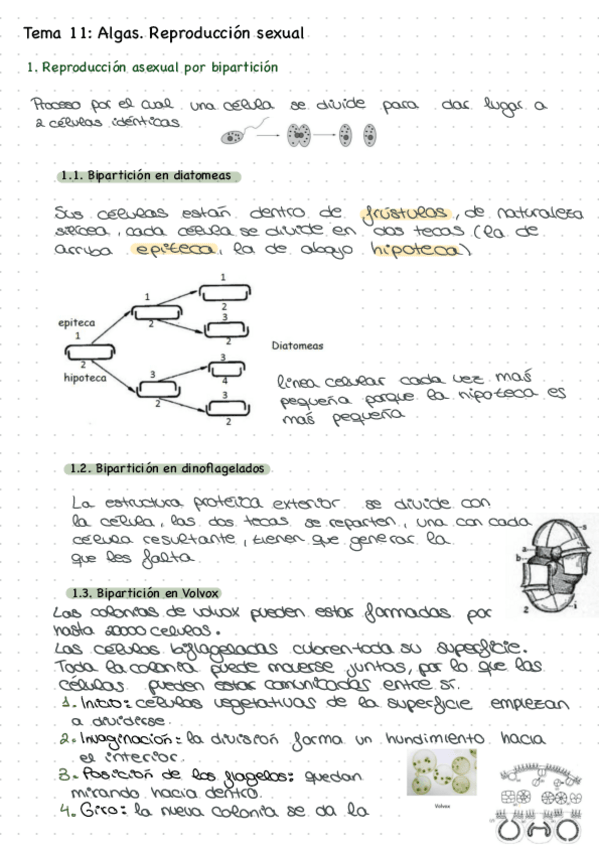 Tema 11: Algas. Reproducción sexual
1. Reproducción asexual por bipartición
Proceso por el cual una célula se divide para dar lugar a
2 células idénticas
1.1. Bipartición en diatomeas
Sus células estan dentro de frústulos, de naturaleza
silícea, cada célula se divide en dos tecas (la de
arriba epiteca, la de abajo hipoteca)
1
1
2
3
epiteca
2
1
2
Diatomeas
2
3
hipoteca
3
4
3
2
2
linea celular cada vez mas
pequeña porque la hipoteca es
mas pequeña
1.2. Bipartición en dinoflagelados
La estructura proteica exterior se divide con
la célula, las dos tecas se reparten, una con cada
célula resultante, tienen que generar la
que les falta
a
b
2
i
1.3. Bipartición en Volvox
Las colonias de volvox pueden estar formadas por
hasta 20000 celulas.
Las células biflageladas cubren toda su superficie.
Toda la colonia puede moverse juntas, por lo que las
células pueden estar comunicadas entre sí.
1. Inicio: células vegetativas de la superficie empiezan
a dividirse.
2. Invaginación: la división forma un hundimiento hacia
el interior.
3. Posición de los flagelos: quedan
mirando hacia dentro.
4. Giro: la nueva colonia se da la
Volvox